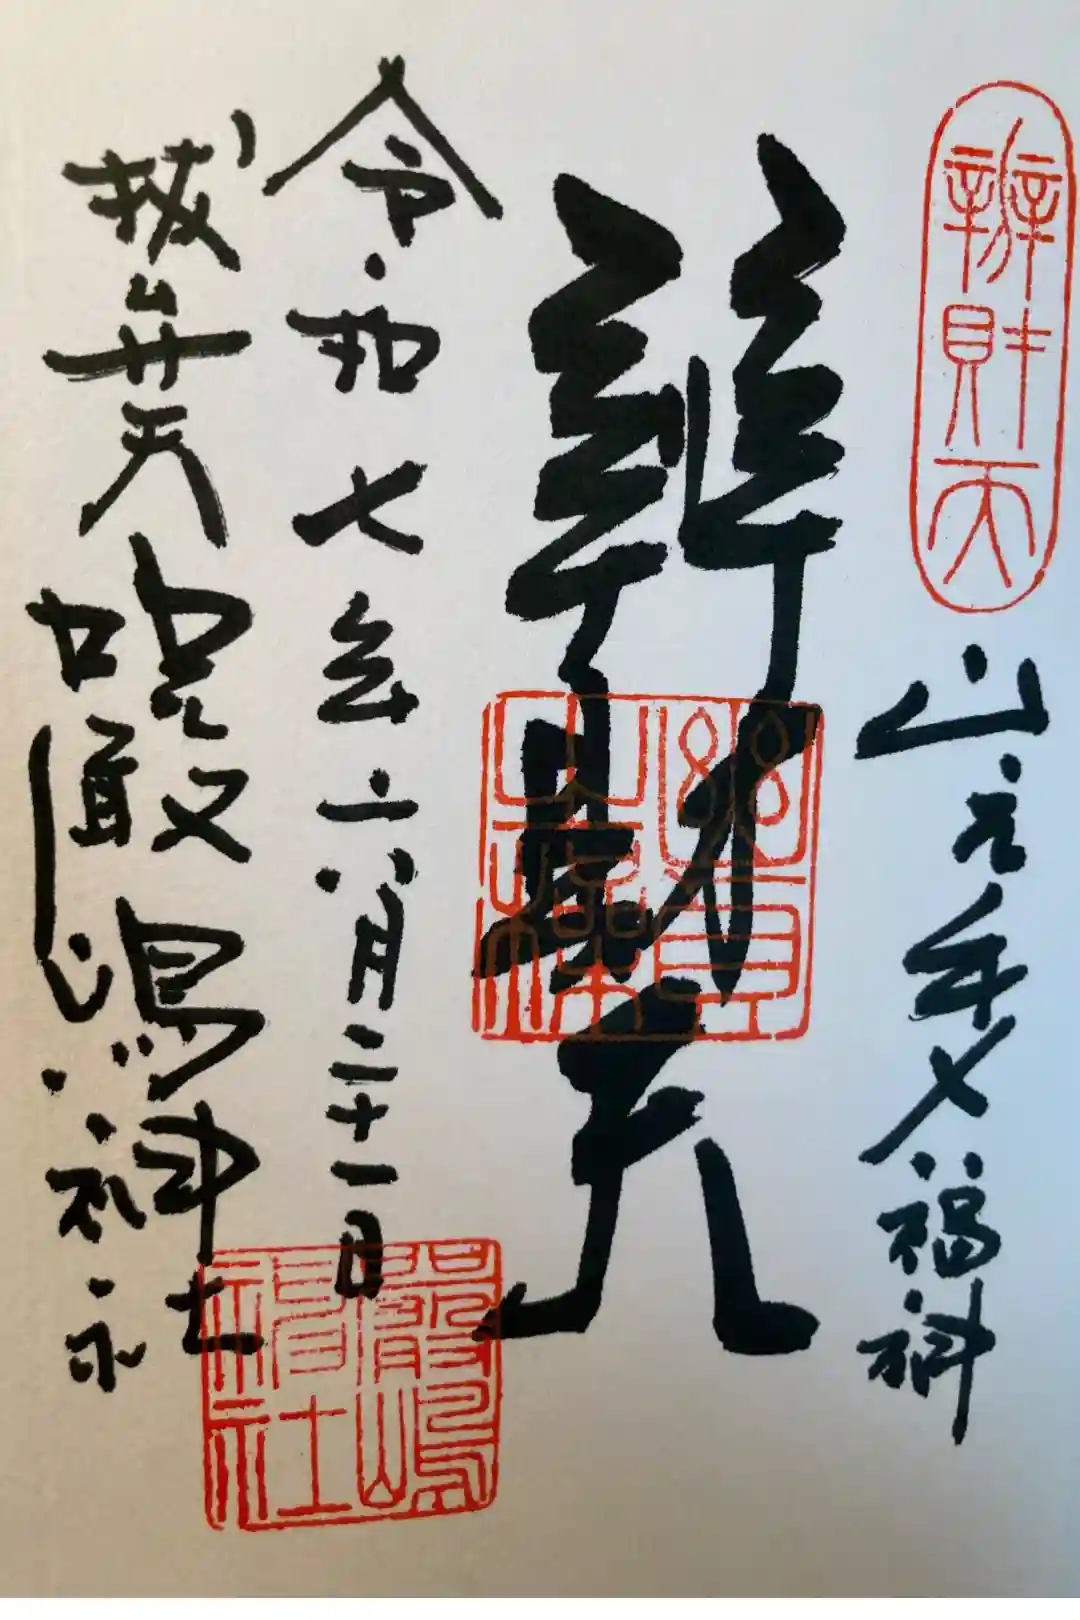 辨財天
山之手七福神
辨財天
令和七年六月二十一日
抜弁天
嚴嶋神社
嚴嶋神社